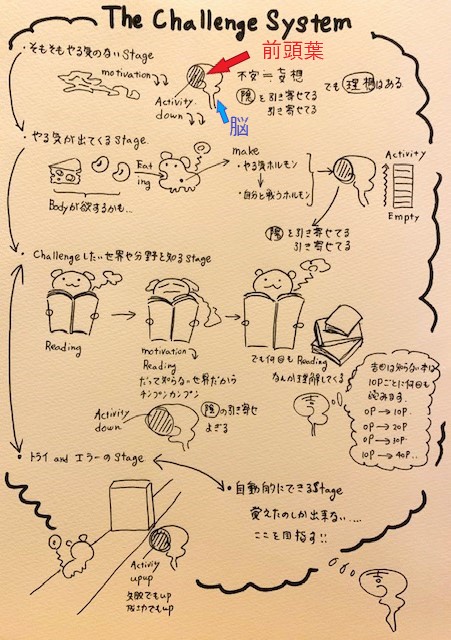 The Challenge System
・そもそもやる気のない Stage
motivation
前頭葉
Activity
down
脳
不安＝妄想
陰を引き寄せてる
引き寄せてる
でも理想はある
・やる気が出てくる Stage.
Eat
ing
Bodyが欲するかも..
make
・やる気ホルモン
・自分と戦うホルモン
Activity
Empty
陰を引き寄せてる
引き寄せてる
・Challengeしたい世界や分野を知るStage
Reading
motivation
Reading
だって知らない世界だから
チンプンカンプン
でも何回もReading
なんか理解してくる
Activity
down
陰の引き寄せ
よぎる
吉田は知らない本は
10Pごとに何回も
読みます.
0P→10P.
0P→20P
0P→30P.
10P→40P..
・トライ and エラーの Stage
・自動的にできるStage
覚えたのしか出来ない.....
ここを目指す!!
Activity
upup
失敗でもup
成功でもup
吉